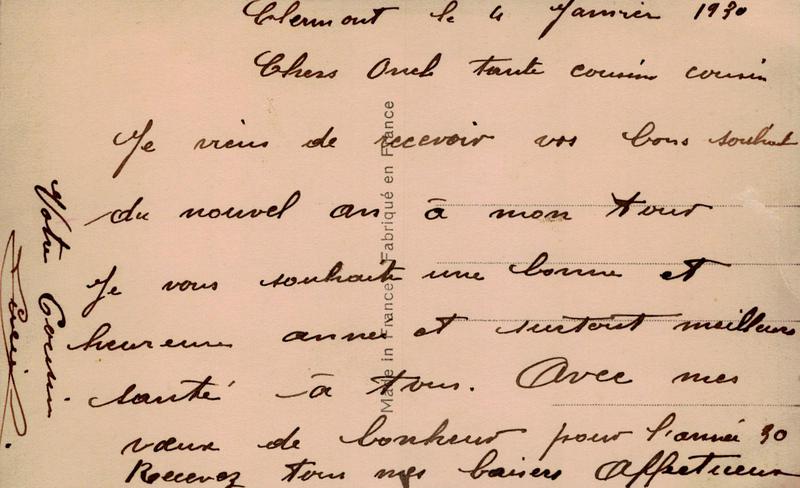 Clermont le 4 Janvier 1930
Chers Oncle tante cousin cousin
Je viens de recevoir vos bons souhait
du nouvel an à mon tour
Je vous souhaite une bonne et
heureuse année et surtout meilleurs
santé à tous. Avec mes
vœux de bonheur pour l'année 30
Recevez tous mes baisers Affectueux
Votre Cousin
Made in France Fabriqué en France